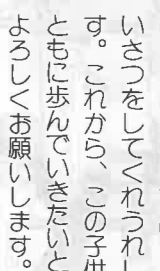 いさつをしてくれうれし
す。これから、この子供
ともに歩んでいきたいと
よろしくお願いします。